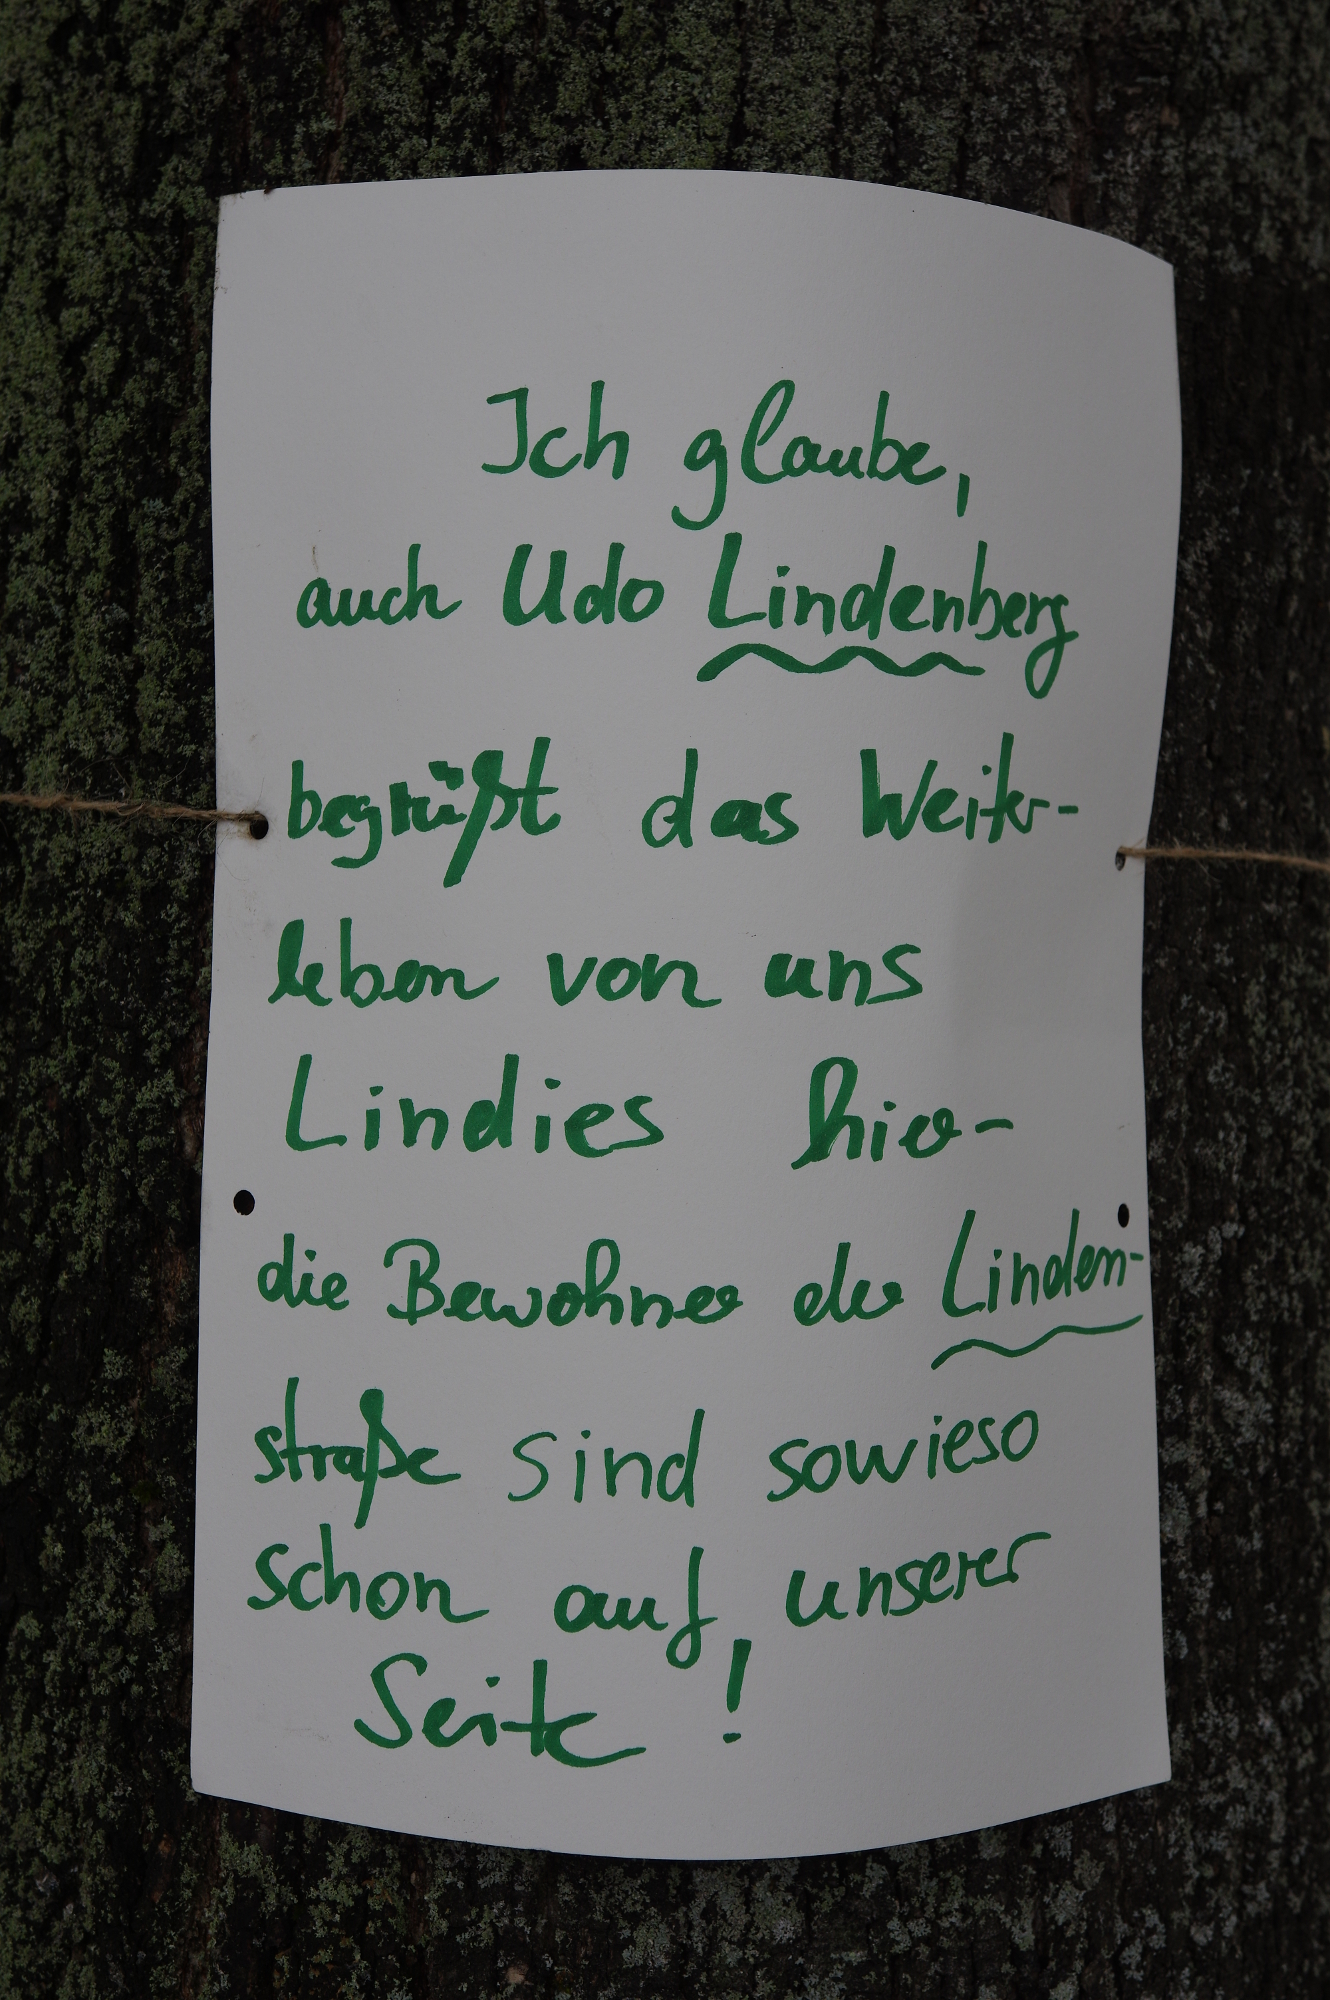 Ich glaube,
auch Udo Lindenberg
begrüßt das Weiter-
leben von uns
Lindies hier-
die Bewohner der Linden-
straße sind sowieso
schon auf unserer
Seite !